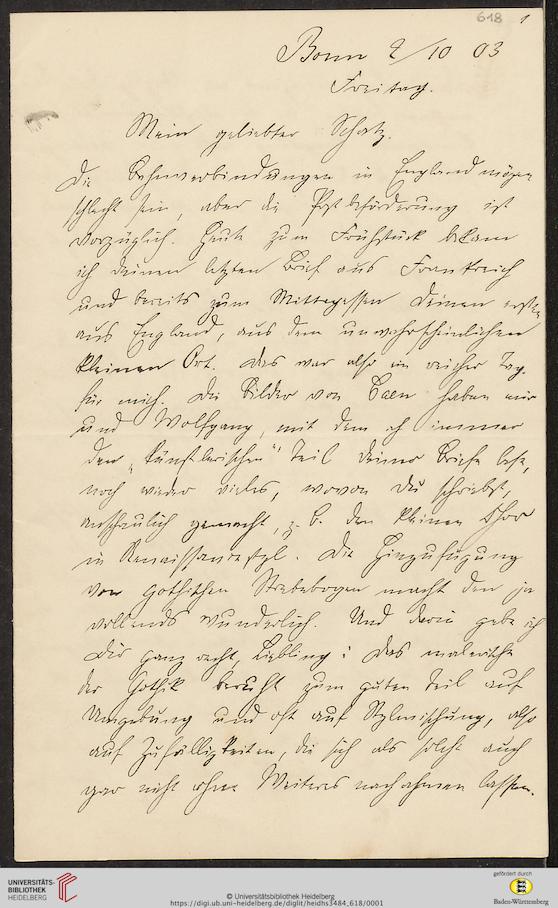 618 1
Bonn 2/10 03
Freitag.
Mein geliebter Schatz.
Die Bahnverbindungen in England mögen
schlecht sein, aber die Postbeförderung ist
vorzüglich. Heute zum Frühstück bekam
ich deinen letzten Brief aus Frankreich
und bereits zum Mittagessen deinen ersten
aus England, aus dem unwahrscheinlichen
kleinen Ort. Das war also ein reicher Tag
für mich. Die Bilder von Caen haben mir
und Wolfgang, mit dem ich immer
den „künstlerischen" Teil deiner Briefe lese,
noch wieder vieles, wovon du schriebst,
anschaulich gemacht, z. B. den kleinen Chor
in Renaissancestyl. Die Hinzufügung
von gothischen Strebebogen macht den ja
vollends wunderlich. Und darin gebe ich
Dir ganz recht, Liebling: das malerische
der Gothik beruht zum guten Teil auf
Umgebung und oft auf Stylmischung, also
auf Zufälligkeiten, die sich als solche auch
gar nicht ohne Weiteres nachahmen lassen.
UNIVERSITÄTS-
BIBLIOTHEK
HEIDELBERG
© Universitätsbibliothek Heidelberg
https://digi.ub.uni-heidelberg.de/diglit/heidhs3484_618/0001
gefördert durch
Baden-Württemberg